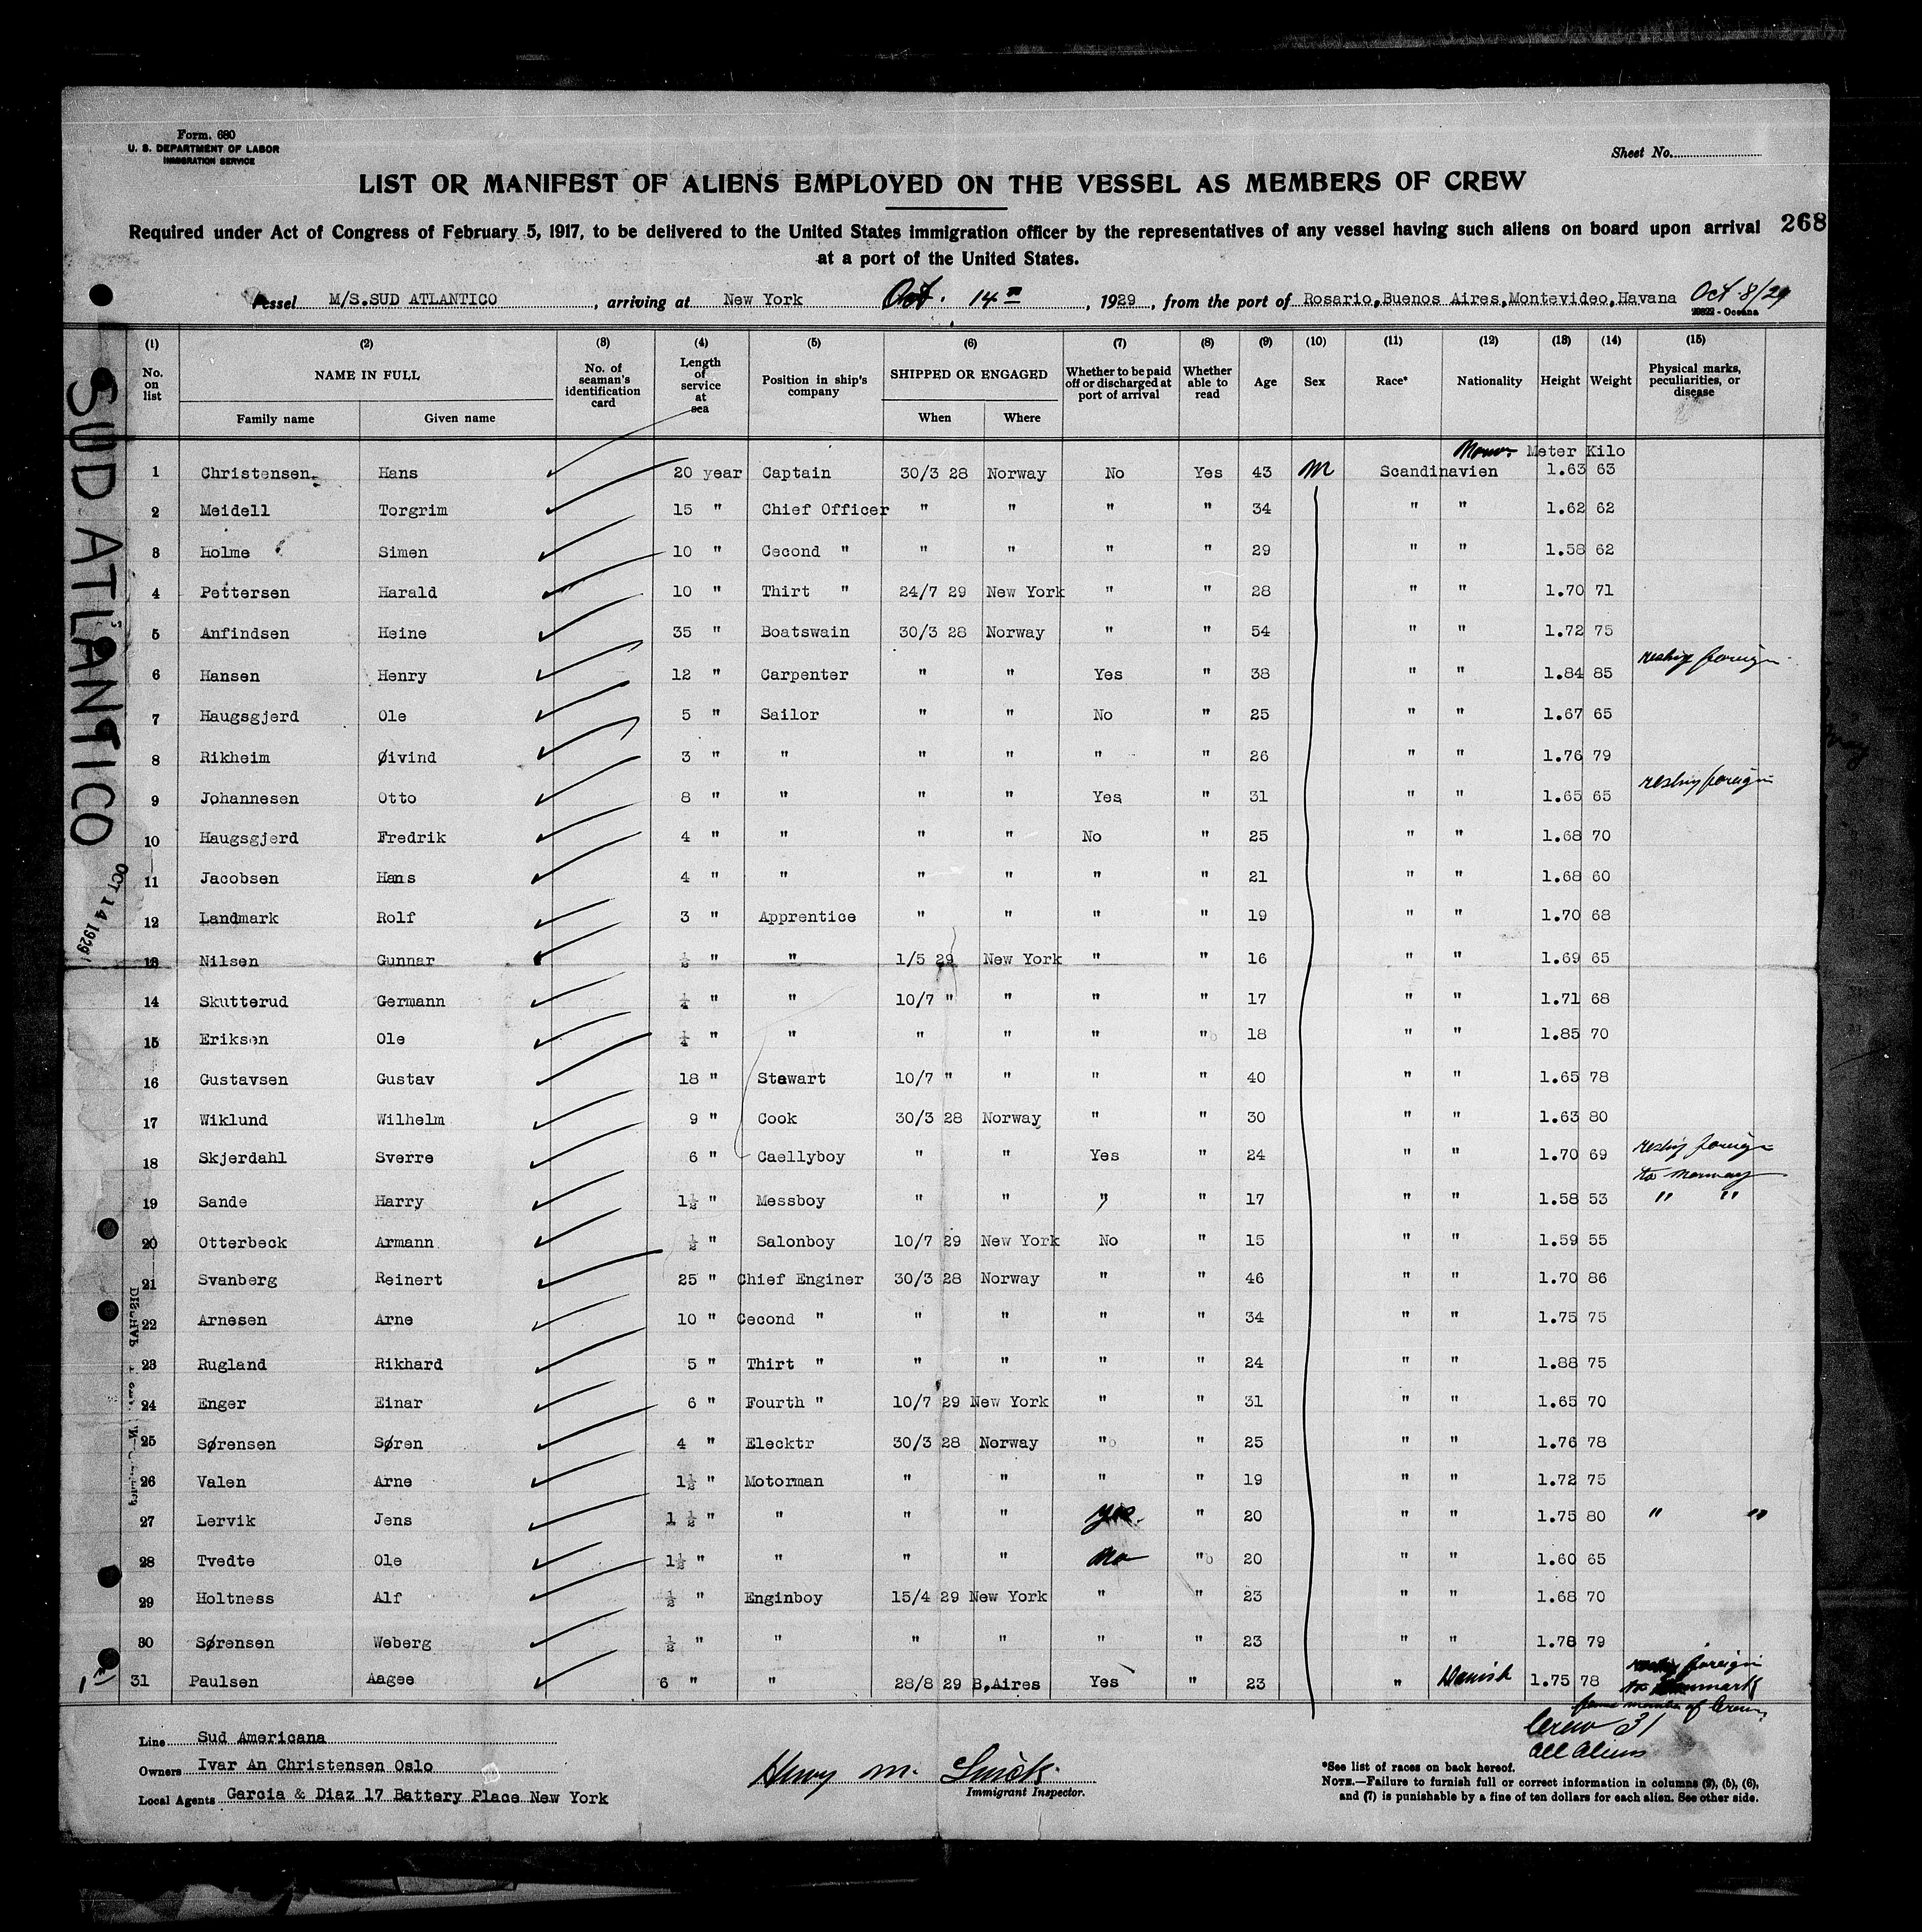 Form. 680
U. S. DEPARTMENT OF LABOR
IMMIGRATION SERVICE
Sheet No.
LIST OR MANIFEST OF ALIENS EMPLOYED ON THE VESSEL AS MEMBERS OF CREW
268
Required under Act of Congress of February 5, 1917, to be delivered to the United States immigration officer by the representatives of any vessel having such aliens on board upon arrival
at a port of the United States.
Vessel M/S.SUD ATLANTICO, arriving at New York Oct. 14th, 1929, from the port of Rosario,Buenos Aires,Montevideo,Havana Oct 8/29
29822 - Oceana
(1) (2) (3) (4) (5) (6) (7) (8) (9) (10) (11) (12) (13) (14) (15)
No. on list NAME IN FULL No. of seaman's identification card Length of service at sea Position in ship's company SHIPPED OR ENGAGED Whether to be paid off or discharged at port of arrival Whether able to read Age Sex Race* Nationality Height Weight Physical marks, peculiarities, or disease
Family name Given name When Where
Meter Kilo
1 Christensen Hans 20 year Captain 30/3 28 Norway No Yes 43 M Scandinavien 1.63 63
2 Meidell Torgrim 15 " Chief Officer " " " " 34 " " 1.62 62
3 Holme Simen 10 " Cecond " " " " " 29 " " 1.58 62
4 Pettersen Harald 10 " Thirt " 24/7 29 New York " " 28 " " 1.70 71
5 Anfindsen Heine 35 " Boatswain 30/3 28 Norway " " 54 " " 1.72 75
6 Hansen Henry 12 " Carpenter " " Yes " 38 " " 1.84 85 reship foreign
7 Haugsgjerd Ole 5 " Sailor " " No " 25 " " 1.67 65
8 Rikheim Øivind 3 " " " " " " 26 " " 1.76 79
9 Johannesen Otto 8 " " " " Yes " 31 " " 1.65 65 reship foreign
10 Haugsgjerd Fredrik 4 " " " " No " 25 " " 1.68 70
11 Jacobsen Hans 4 " " " " " " 21 " " 1.68 60
12 Landmark Rolf 3 " Apprentice " " " " 19 " " 1.70 68
13 Nilsen Gunnar ½ " " 1/5 29 New York " " 16 " " 1.69 65
14 Skutterud Germann ¼ " " 10/7 " " " " 17 " " 1.71 68
15 Eriksen Ole ¼ " " " " " " 18 " " 1.85 70
16 Gustavsen Gustav 18 " Stewart 10/7 " " " " 40 " " 1.65 78
17 Wiklund Wilhelm 9 " Cook 30/3 28 Norway " " 30 " " 1.63 80
18 Skjerdahl Sverre 6 " Caellyboy " " Yes " 24 " " 1.70 69 reship foreign
to Norway
19 Sande Harry 1½ " Messboy " " " " 17 " " 1.58 53 " "
20 Otterbeck Armann ½ " Salonboy 10/7 29 New York No " 15 " " 1.59 55
21 Svanberg Reinert 25 " Chief Enginer 30/3 28 Norway " " 46 " " 1.70 86
22 Arnesen Arne 10 " Cecond " " " " " 34 " " 1.75 75
23 Rugland Rikhard 5 " Thirt " " " " " 24 " " 1.88 75
24 Enger Einar 6 " Fourth " 10/7 29 New York " " 31 " " 1.65 70
25 Sørensen Søren 4 " Elecktr 30/3 28 Norway " " 25 " " 1.76 78
26 Valen Arne 1½ " Motorman " " " " 19 " " 1.72 75
27 Lervik Jens 1½ " " " " yes " 20 " " 1.75 80 " "
28 Tvedte Ole 1½ " " " " no " 20 " " 1.60 65
29 Holtness Alf ½ " Enginboy 15/4 29 New York " " 23 " " 1.68 70
30 Sørensen Weberg ½ " " " " " " 23 " " 1.78 79
31 Paulsen Aagee 6 " " 28/8 29 B,Aires Yes " 23 " Danish 1.75 78 reship foreign
to Denmark
member of Crew
Crew 31
all aliens
SUD ATLANTICO
OCT 14 1929
Line Sud Americana
Owners Ivar An Christensen Oslo
Local Agents Garcia & Diaz 17 Battery Place New York
Henry M.
Immigrant Inspector.
*See list of races on back hereof.
NOTE.—Failure to furnish full or correct information in columns (2), (5), (6),
and (7) is punishable by a fine of ten dollars for each alien. See other side.